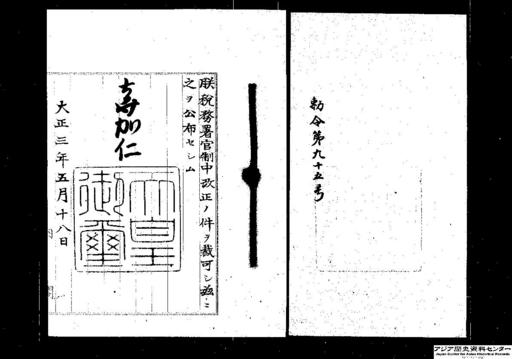 勅令第九十五号
朕税務署官制中改正ノ件ヲ裁可シ茲ニ
之ヲ公布セシム
嘉仁
天皇御璽
大正三年五月十八日
アジア歴史資料センター
Japan Center for Asian Historical Records